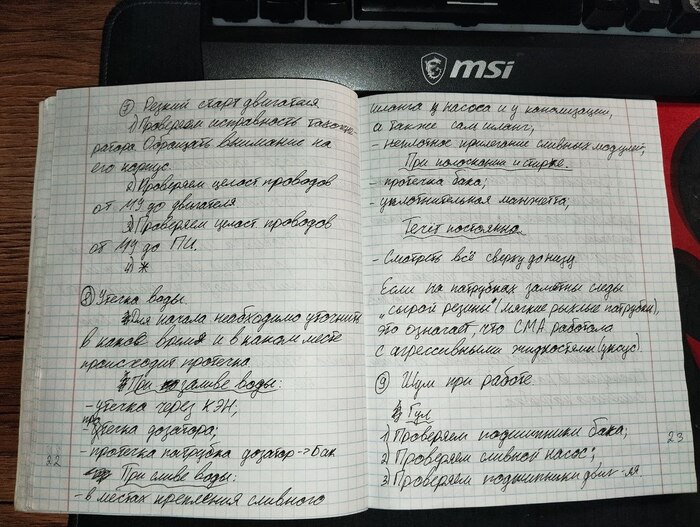 msi
⑦ Резкий старт двигателя
1) Проверяем исправность тахоге-
ратора. Обращать внимание на
его корпус.
2) Проверяем целост проводов
от МУ до двигателя
3) Проверяем целост проводов
от МУ до ПУ.
4) *
⑧ Утечка воды.
Для начала необходимо уточнить
в какое время и в каком месте
происходит протечка
При заливе воды:
- утечка через КЭН;
- протечка дозатора;
- протечка патрубка дозатор -> бак
При сливе воды:
- в местах крепления сливного
22
шланга у насоса и у канализации,
а также сам шланг;
- неплотное прилегание сливных модулей;
При полоскании и стирке.
- протечка бака;
- уплотнительная манжетта;
Течёт постоянно
- Смотреть всё сверху донизу.
Если на патрубках заметны следы
"сырой резины" (мягкие рыхлые патрубки),
это означает, что СМА работала
с агрессивными жидкостями (уксус).
⑨ Шум при работе.
Гул
1) Проверяем подшипники бака;
2) Проверяем сливной насос;
3) Проверяем подшипники двиг-ля.
23